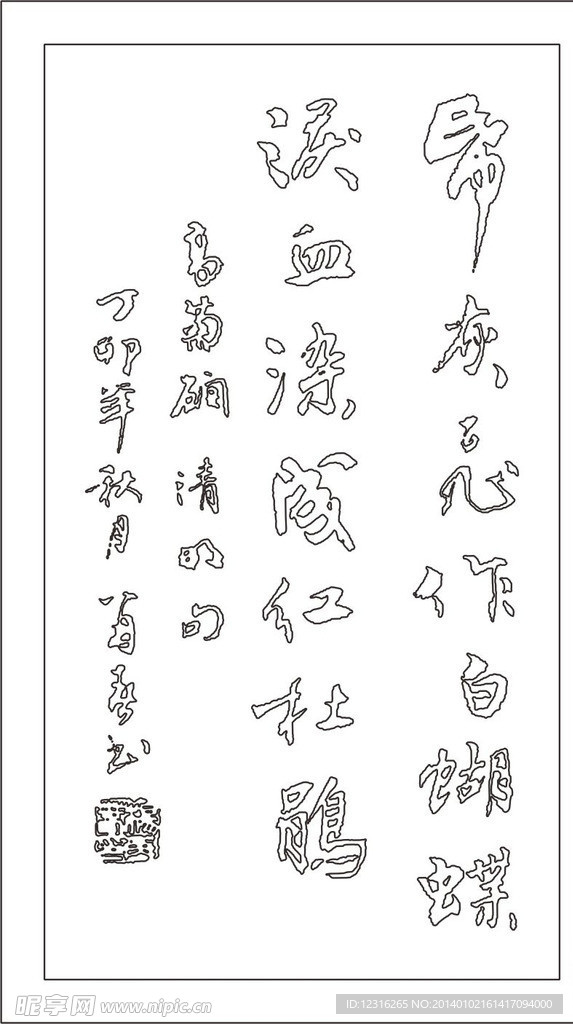 帋灰飛作白蝴蝶
淚血染成紅杜鵑
高菊磵清明句
丁卯年秋月 书
昵享网 www.nipic.cn
ID:12316265 NO:20140102161417094000